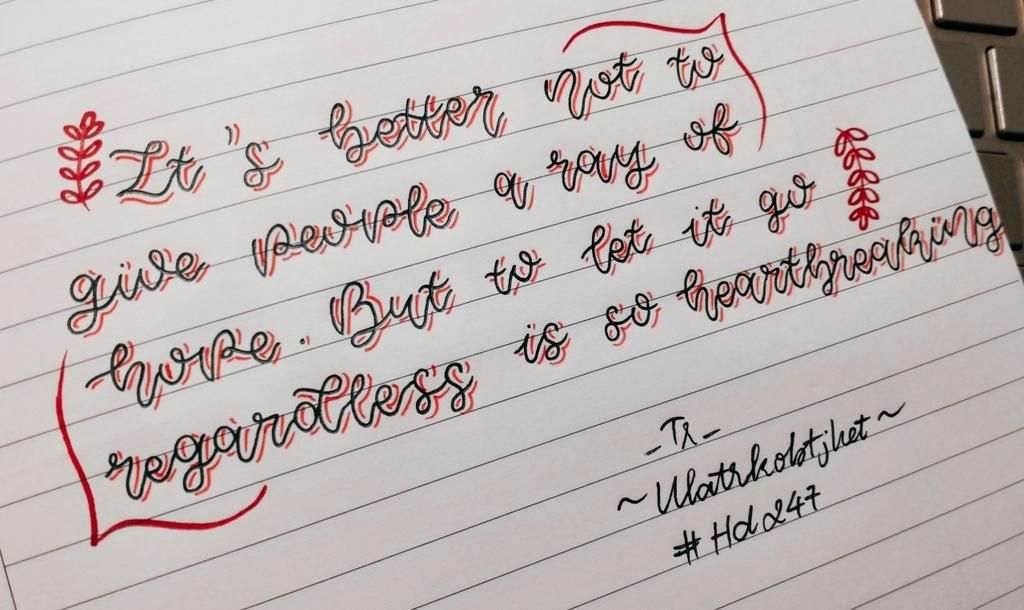 It's better not to
give people a ray of
hope. But to let it go
regardless is so heartbreaking
#Hd247